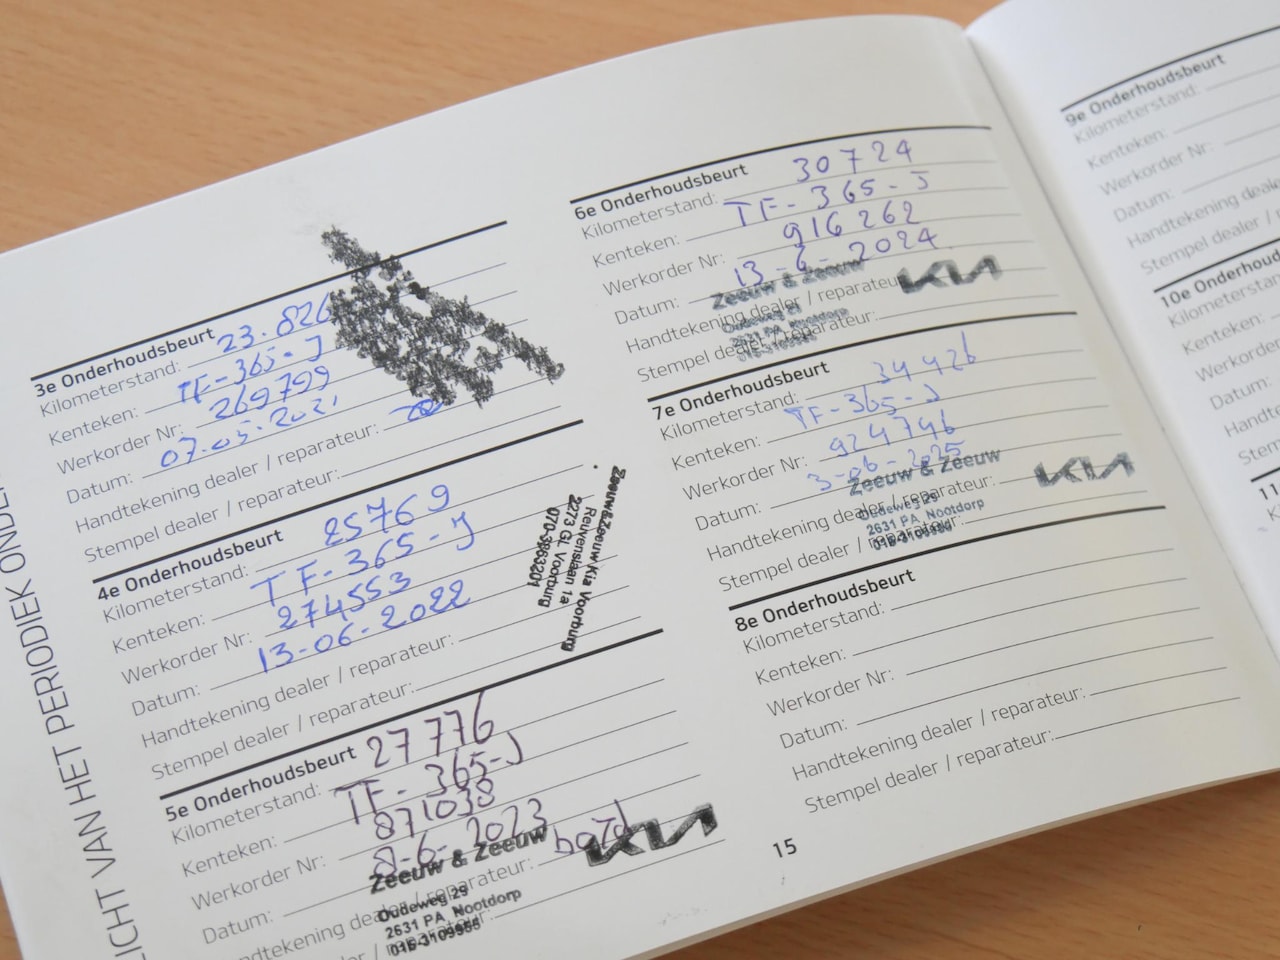 LICHT VAN HET PERIODIEK ONDE
3e Onderhoudsbeurt
Kilometerstand: 23.826
Kenteken: TF-365-J
Werkorder Nr: 269799
Datum: 07-05-2021
Handtekening dealer / reparateur:
Stempel dealer / reparateur:
4e Onderhoudsbeurt
Kilometerstand: 25769
Kenteken: TF-365-J
Werkorder Nr: 274553
Datum: 13-06-2022
Handtekening dealer / reparateur:
Stempel dealer / reparateur:
Zeeuw&Zeeuw Kia Voorburg
Reuvenslaan 1a
2273 GL Voorburg
070-3863201
5e Onderhoudsbeurt
Kilometerstand: 27776
Kenteken: TF-365-J
Werkorder Nr: 871038
Datum: 8-6-2023
ndtekening dealer / reparateur:
Zeeuw & Zeeuw KIA
Oudeweg 29
2631 PA Nootdorp
6e Onderhoudsbeurt
Kilometerstand: 30724
Kenteken: TF-365-J
Werkorder Nr: 916262
Datum: 13-6-2024
Handtekening dealer / reparateur:
Stempel dealer / reparateur:
Zeeuw & Zeeuw KIA
2631 PA Nootdorp
7e Onderhoudsbeurt
Kilometerstand: 34426
Kenteken: TF-365-J
Werkorder Nr: 924746
Datum: 3-06-2025
Handtekening dealer / reparateur:
Stempel dealer / reparateur:
Zeeuw & Zeeuw KIA
Oudeweg 29
2631 PA Nootdorp
8e Onderhoudsbeurt
Kilometerstand:
Kenteken:
Werkorder Nr:
Datum:
Handtekening dealer / reparateur:
Stempel dealer / reparateur:
15
9e Onderhoudsbeurt
Kilometerstand:
Kenteken:
Werkorder Nr:
Datum:
Handtekening deale
Stempel dealer / re
10e Onderhoud
Kilometerstan
Kenteken:
Werkorder
Datum:
Handteke
Stem
11